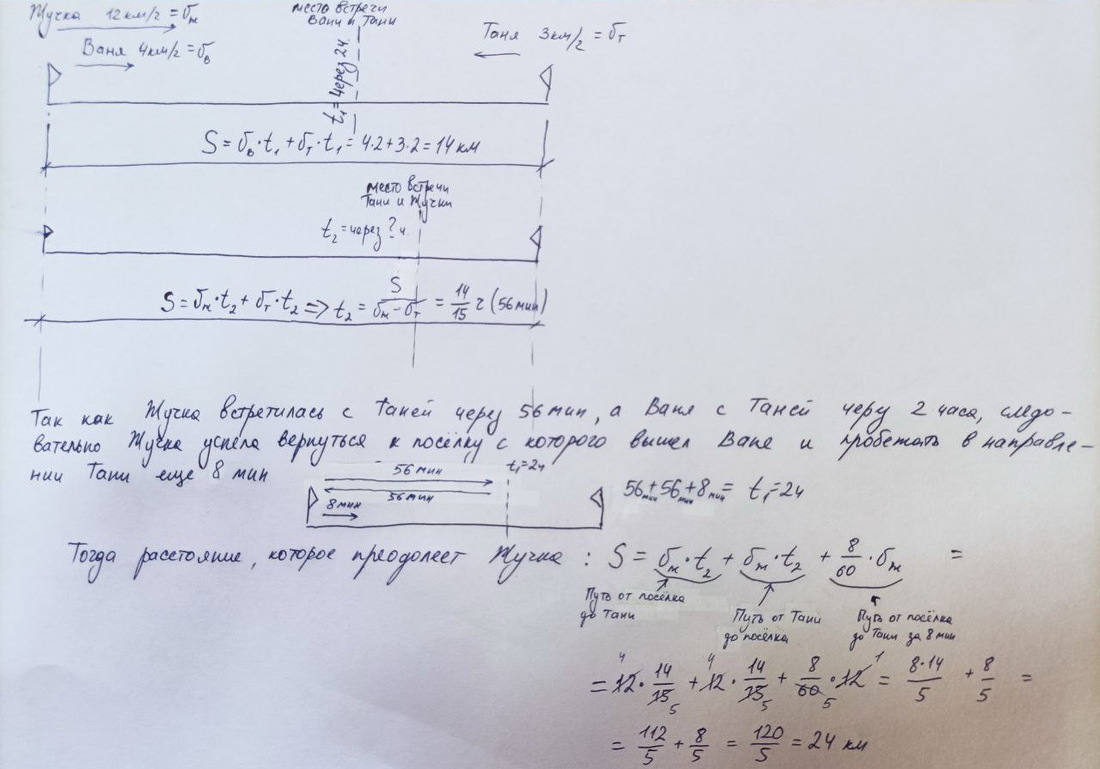 Жучка 12км/ч = υж
Ваня 4км/ч = υв
место встречи
Вани и Тани
Таня 3км/ч = υт
t₁ = через 2ч.
S = υв·t₁ + υт·t₁ = 4·2 + 3·2 = 14 км
место встречи
Тани и Жучки
t₂ = через ? ч.
S = υж·t₂ + υт·t₂ => t₂ = S/(υж – υт) = 14/15 ч (56 мин)
Так как Жучка встретилась с Таней через 56 мин, а Ваня с Таней черу 2 часа, следо-
вательно Жучка успела вернуться к посёлку с которого вышел Ваня и пробежать в направле-
нии Тани еще 8 мин
56 мин
t₁=2ч
56 мин
8 мин
56мин + 56мин + 8мин = t₁ = 2ч
Тогда расстояние, которое преодолеет Жучка : S = υж·t₂ + υж·t₂ + 8/60·υж =
Путь от посёлка
до Тани
Путь от Тани
до посёлка
Путь от посёлка
до Тани за 8 мин
= 12·14/15 + 12·14/15 + 8/60·12 = 8·14/5 + 8/5 =
= 112/5 + 8/5 = 120/5 = 24 км